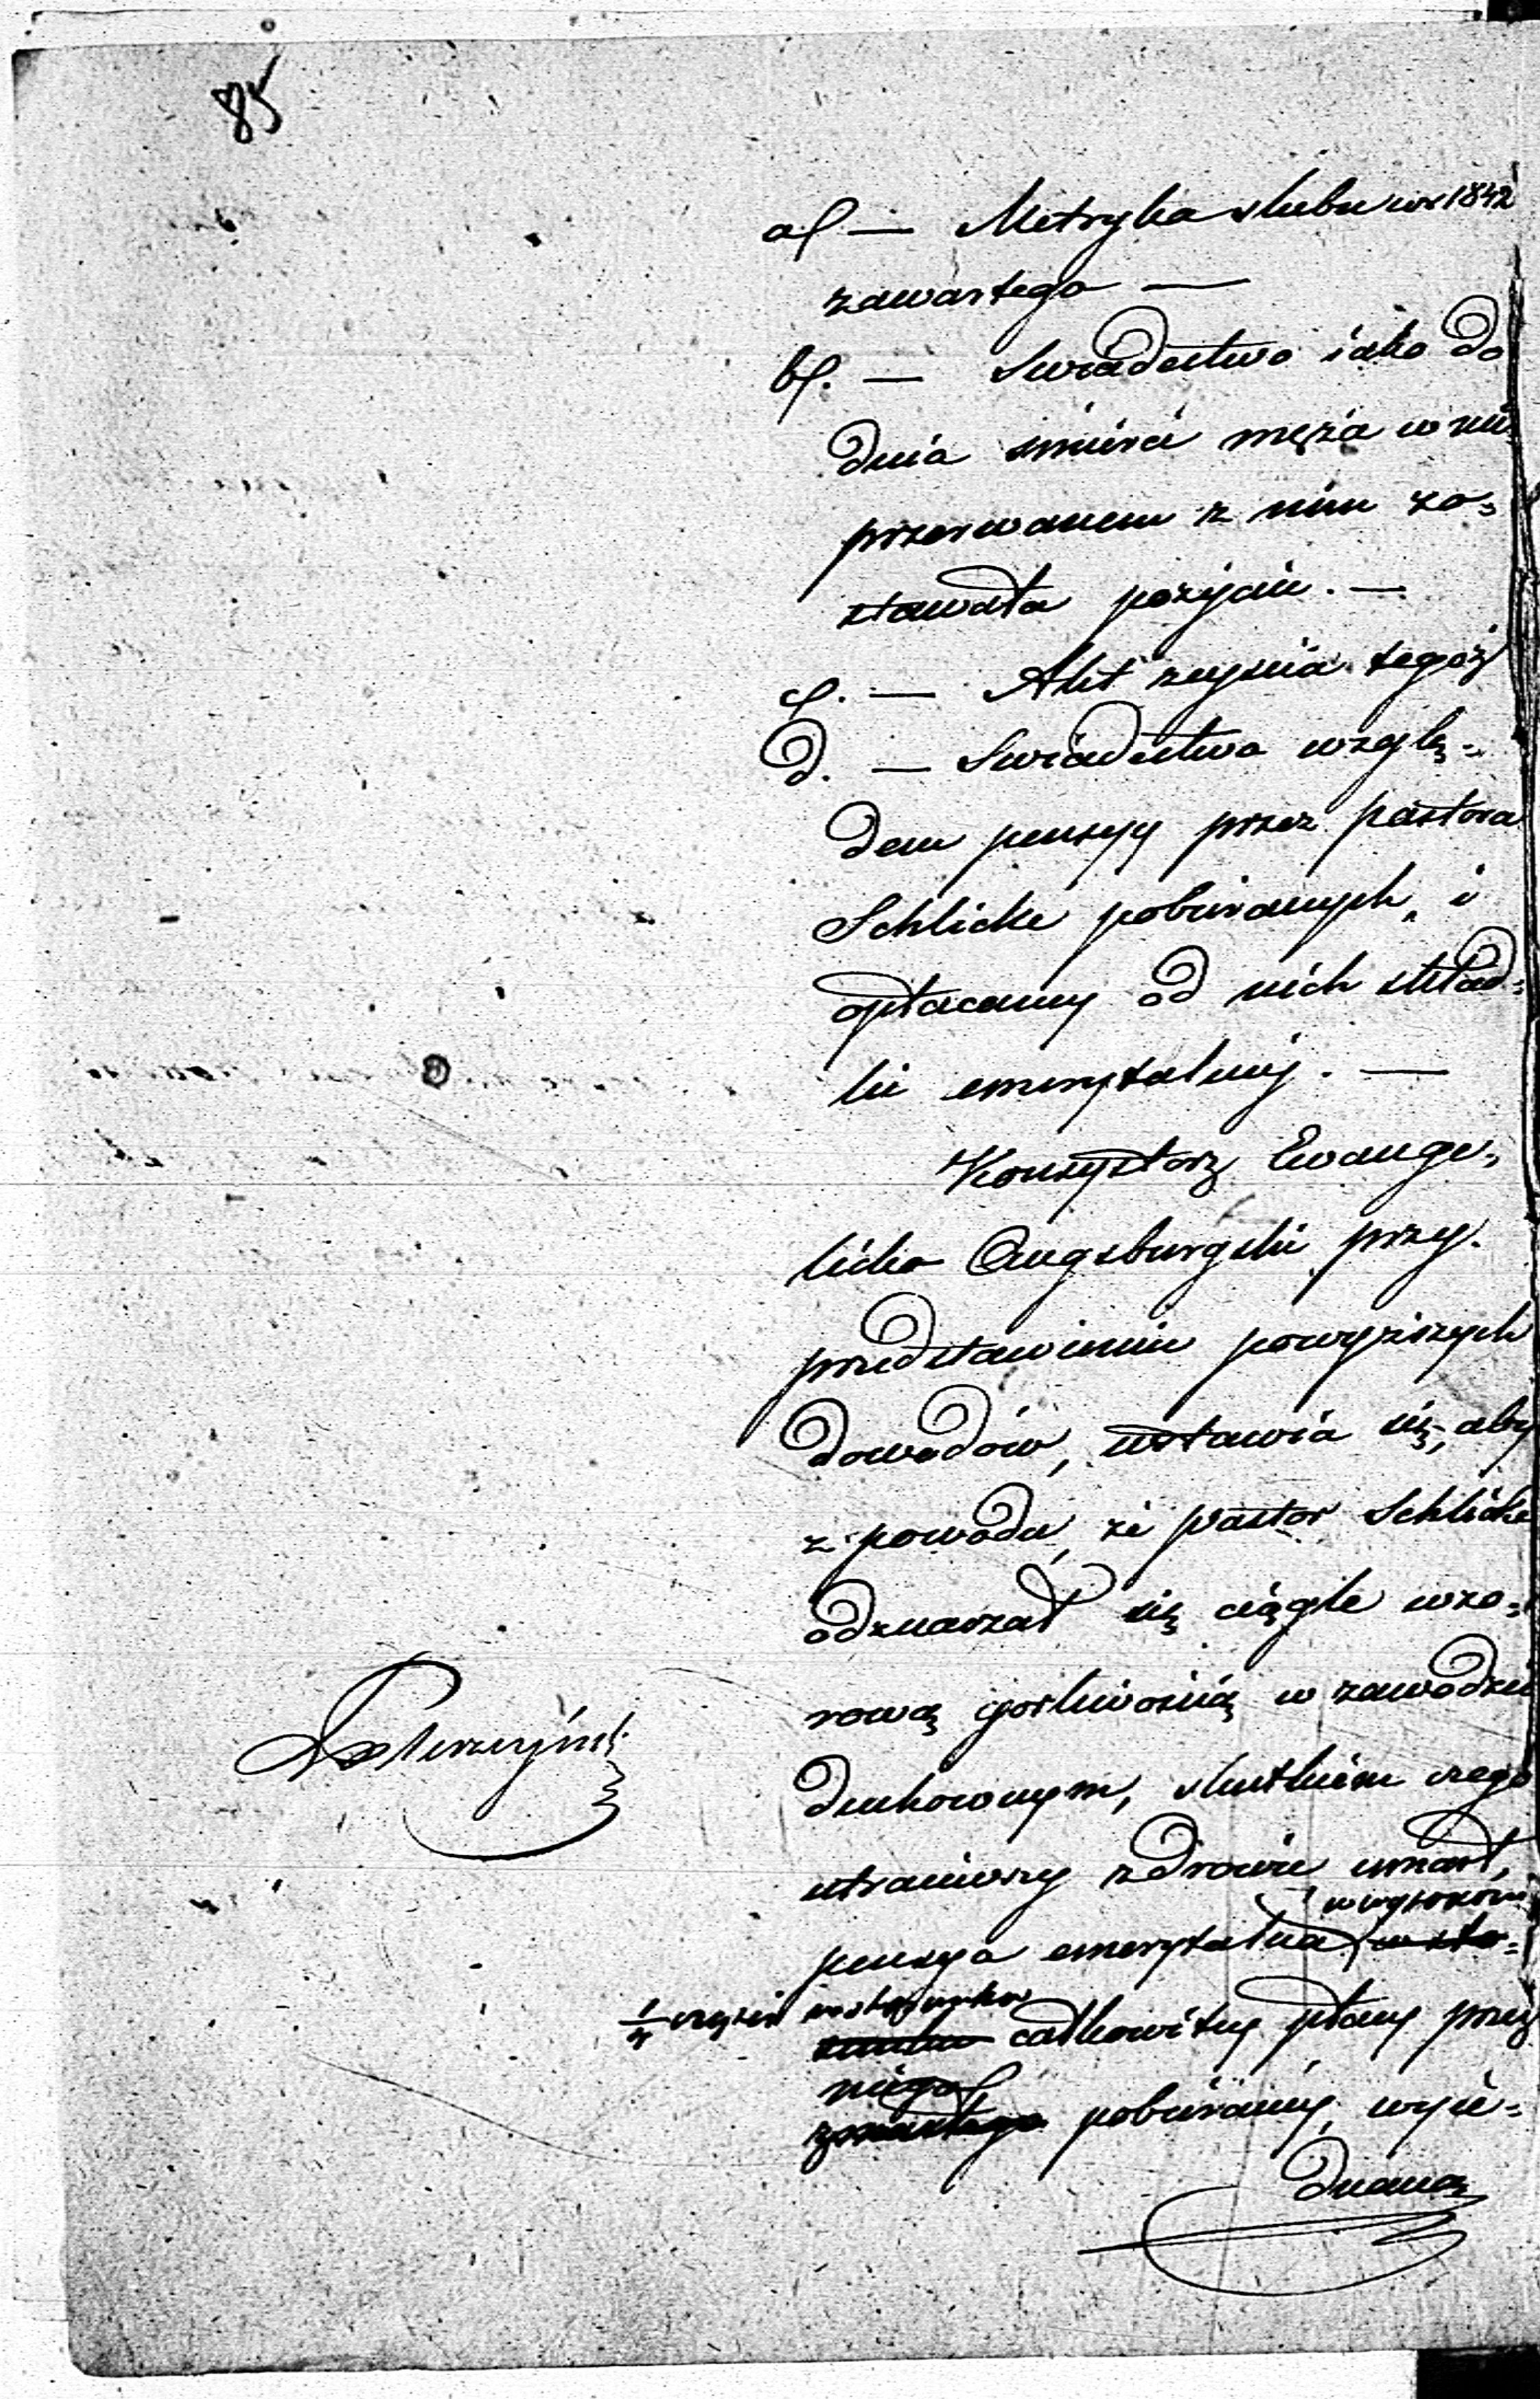 85
a/ — Metryka slubu w r 1842
zawartego —
b/. — Swiadectwo iako do
dnia smierci męża w nie
przerwanem z nim zo-
stawała pożyciu. —
c/. — Akt zejscia tegoż
d. — Swiadectwo wzglę-
dem pensyy przez pastora
Schlicke pobieranych, i
opłacaney od nich skład-
ki emerytalney. —
Konsystorz Ewange-
licko Augsburgski przy
przedstawieniu powyższych
dowodów, wstawia się, aby
z powodu, że pastor Schlicke
odznaczał się ciągle wzo-
rową gorliwoscią w zawodzie
duchownym, skutkiem czego
utraciwszy zdrowie umarł,
w wysokosci
pensya emerytalna w sto-
¼ części w stosunku
całkowitey płacy przez
niego
zmarłego pobieraney, wyie-
dnaną